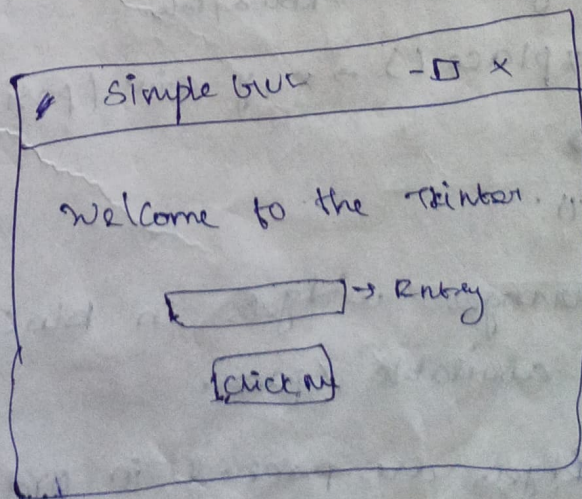 Simple GUI - □ ×
Welcome to the Tkinter.
→ Entry
Click Me